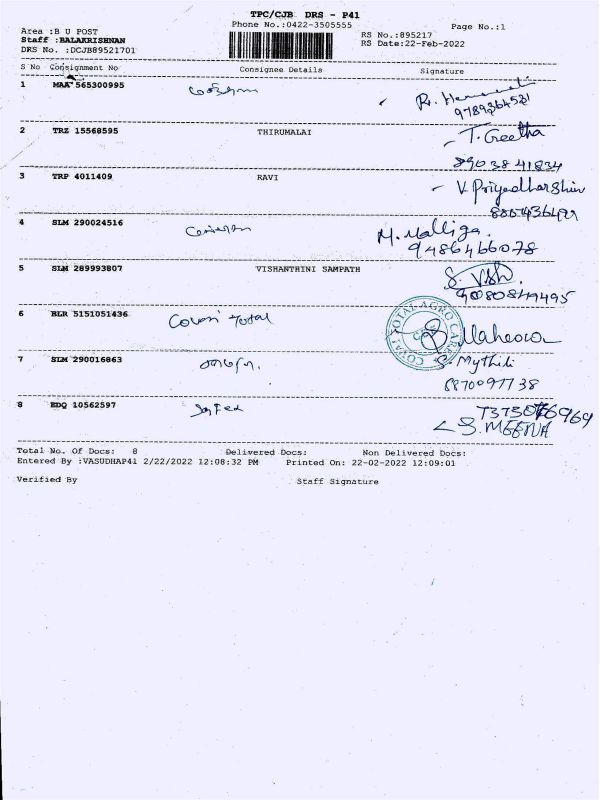 TPC/CJB DRS - P41
Phone No.:0422-3505555
Page No.:1
Area :B U POST
Staff :BALAKRISHNAN
DRS No. :DCJB89521701
RS No.:895217
RS Date:22-Feb-2022
S No Consignment No Consignee Details Signature
1 MAA 565300995
9789364531
2 TRZ 15568595 THIRUMALAI T. Geetha
89038 41834
3 TRP 4011409 RAVI V. Priyadharshini
4 SLM 290024516 M. Malliga
9486466078
5 SLM 289993807 VISHANTHINI SAMPATH S. Vish
9080849495
6 BLR 5151051436 Covai Total
COVAI TOTAL AGRO CARE
7 SLM 290016863 S. Mythili
8870097738
8 EDQ 10562597
S. MEENA
Total No. Of Docs: 8 Delivered Docs: Non Delivered Docs:
Entered By :VASUDHAP41 2/22/2022 12:08:32 PM Printed On: 22-02-2022 12:09:01
Verified By Staff Signature